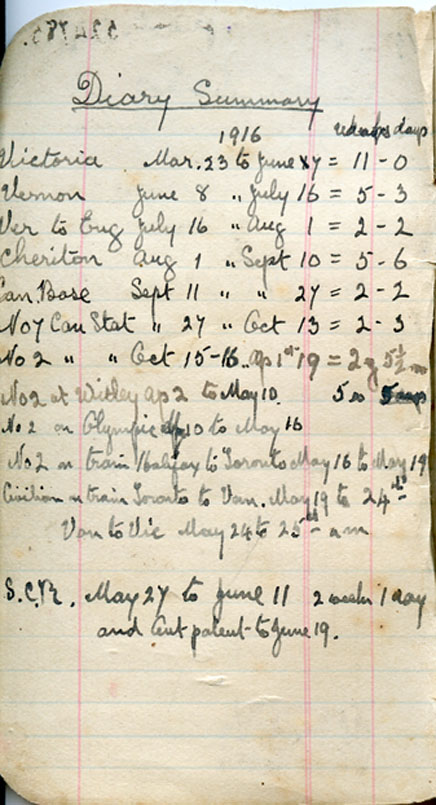 Diary Summary
1916 weeks days
Victoria Mar. 23 to June 7 = 11 - 0
Vernon June 8 " July 16 = 5 - 3
Ver to Eng July 16 " Aug 1 = 2 - 2
Cheriton Aug 1 " Sept 10 = 5 - 6
Can. Base Sept 11 " " 27 = 2 - 2
No 7 Can Stat " 27 " Oct 13 = 2 - 3
No 2 " " Oct 15-16 " Ap 1st 19 = 2 y 5½ m
No 2 at Witley Ap 2 to May 10. 5 w
No 2 on Olympic 10 to May 16
No 2 on train Halifax to Toronto May 16 to May 19
Civilian on train Toronto to Van. May 19 to 24th
Van to Vic May 24 to 25th a m
S.C.R. May 27 to June 11 2 weeks 1 day
and Out patient to June 19.